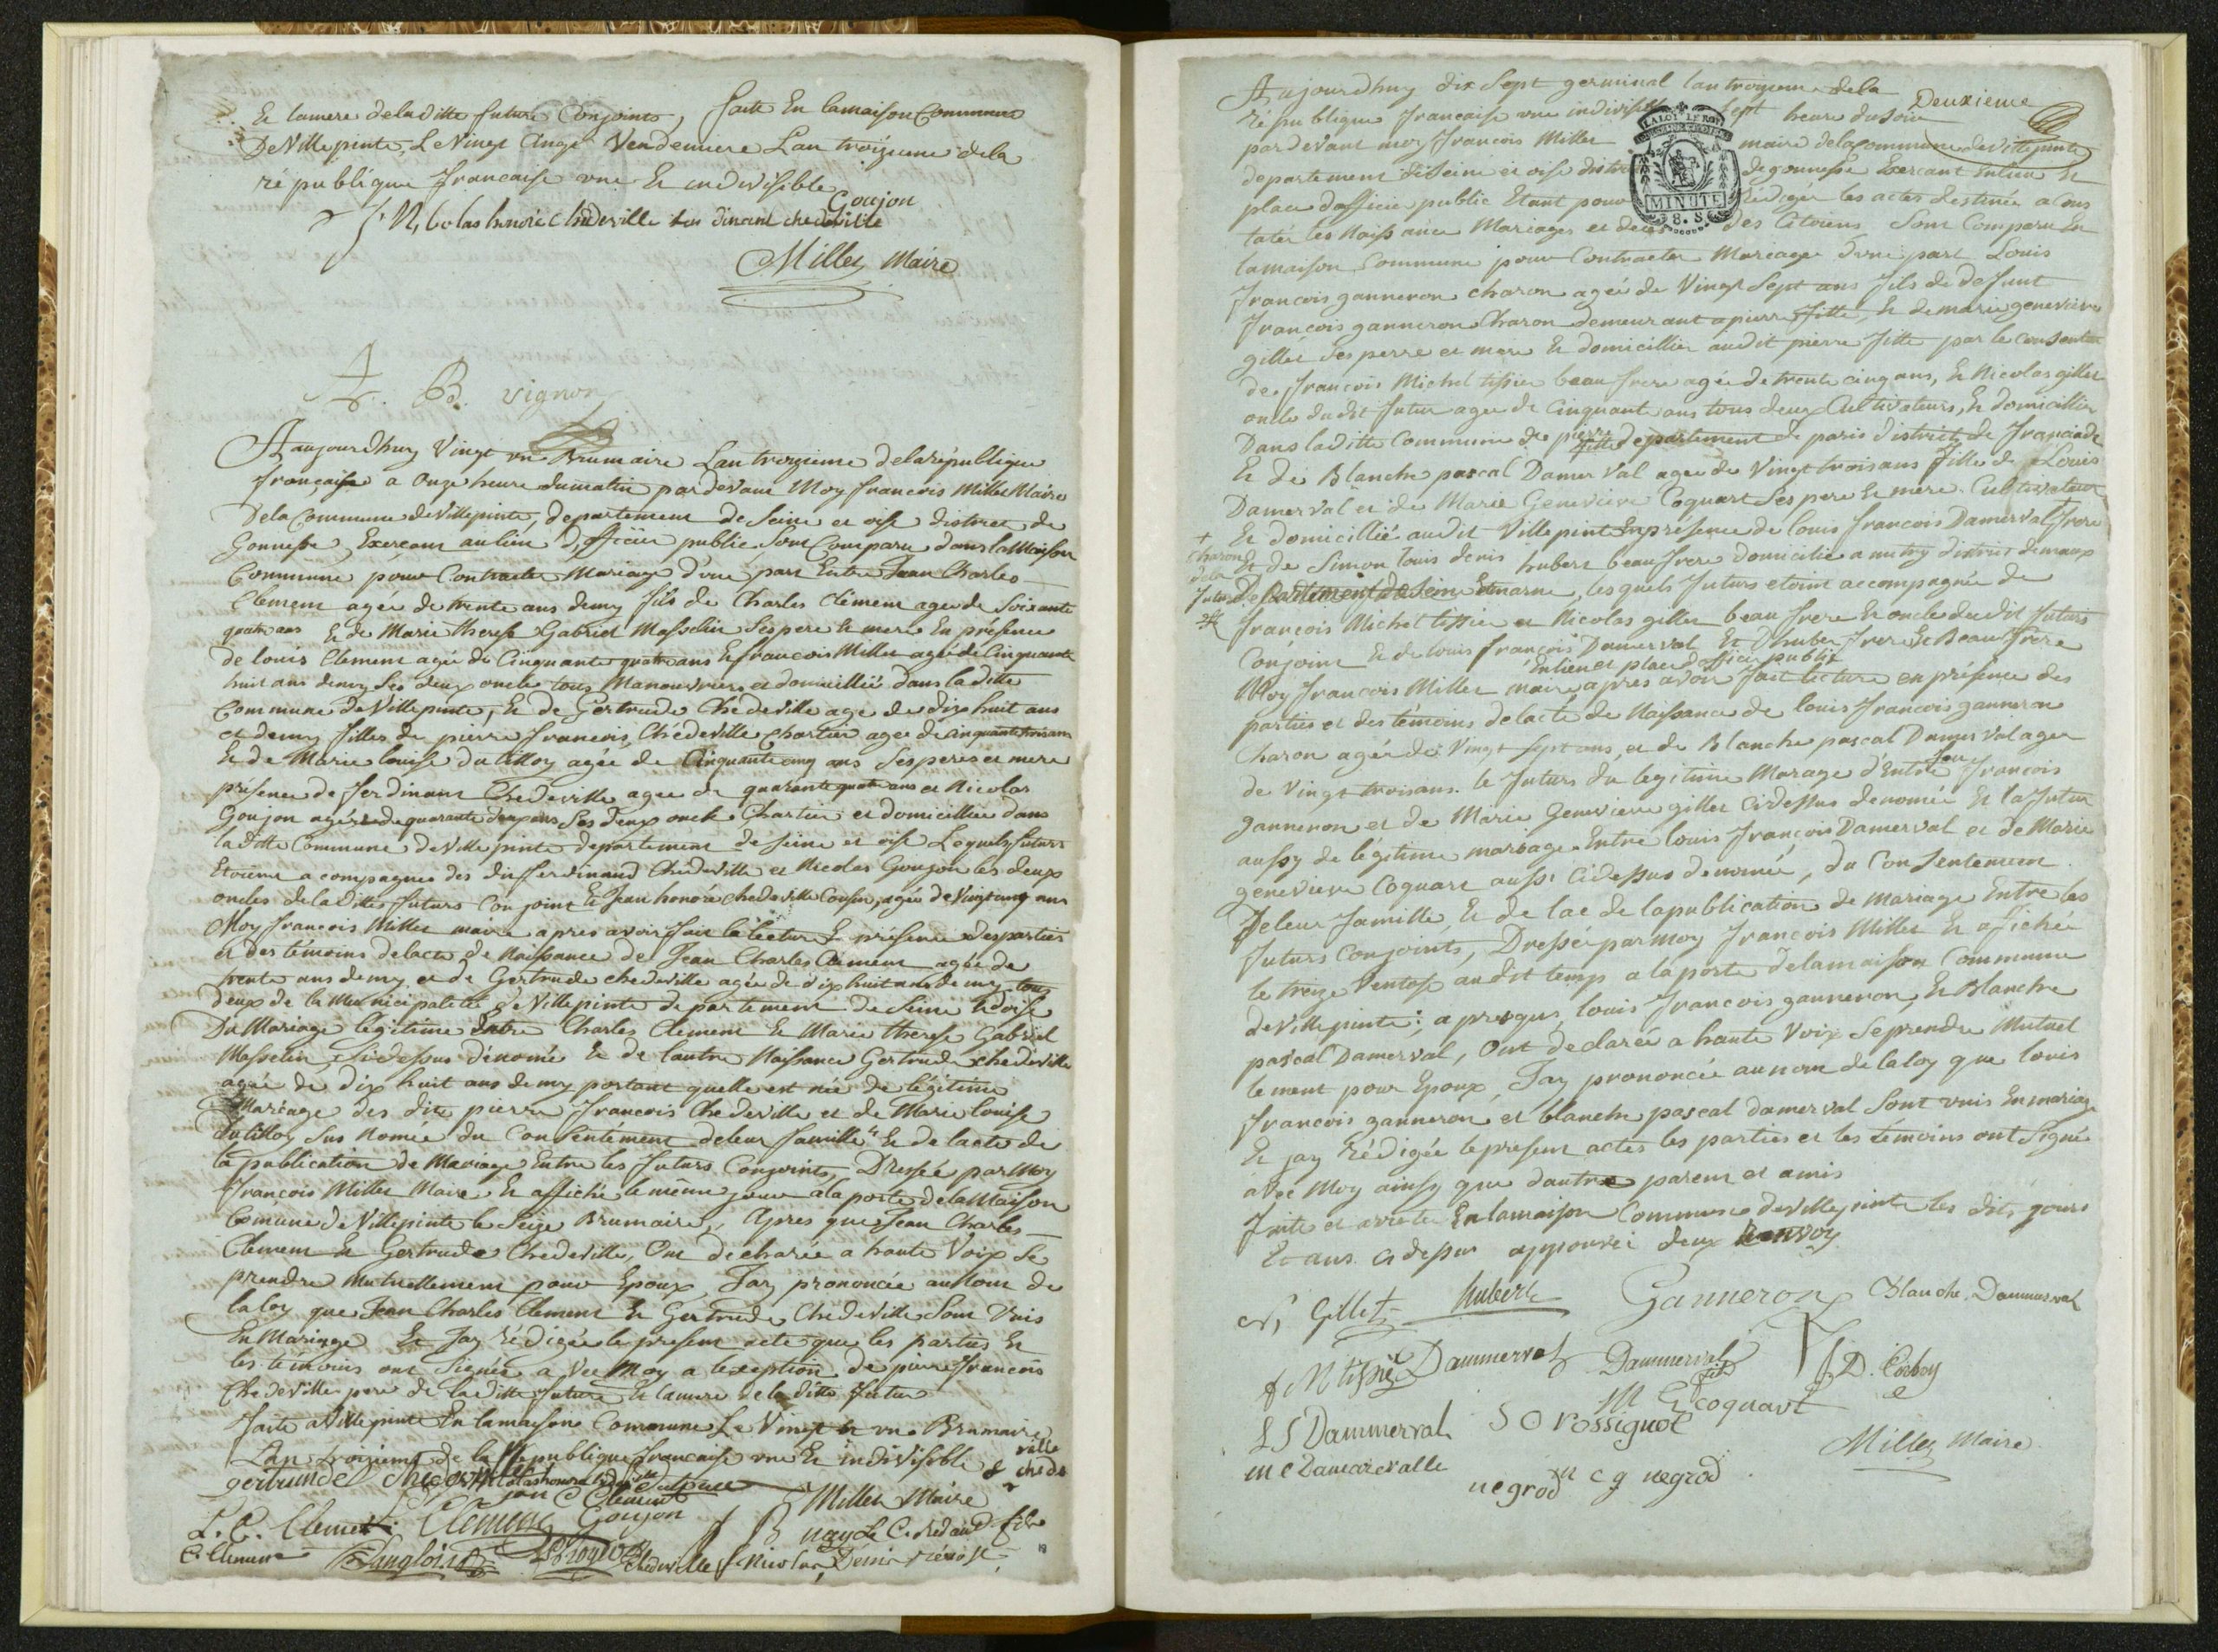 Et lamere deladitte future Conjointe, faite En lamaison Commune
De Villepinte, Le Vingt Cinq Vendemiere Lan troizieme dela
république francaise une Et indivisible
Goujon
N, Colas honoré Chedeville fer dinant chedeville
Milles Maire
A. B. vignon
Aaujourdhuy Vingt un Brumaire Lan troizieme delarépublique
française a Onze heure dumatin pardevant Moy francois Milles Maire
Dela Commune deVillepinte, departement de Seine et oise district de
Gonnesse Exercant aulieu Dofficier public Sont Comparu dans la Maison
Commune pour Contracter Mariage d'une part Entre Jean Charles
Clement agée de trente ans demy fils de Charles Clement agée de Soixante
quatre ans Et de Marie therese Gabriel Masselin Ses pere Et mere En présence
de louis Clement agée de Cinquante quatre ans Et francois Milles agée de Cinquante
huit ans demy Ses deux oncle tous Manouvriers et domicillié dans laditte
Commune de Villepinte, Et de Gertrude Chedeville age de dix huit ans
et demy filles de pierre francois Chédeville Chartier agée de cinquante trois ans
Et de Marie louise dutilloy agée de Cinquante cinq ans Ses peres et mere
présence de ferdinant Chedeville agee de quarante quatre ans et Nicolas
Goujon agée de quarante deux ans Ses deux oncle Chartier et domicillier dans
laditte Commune de Villepinte departement de Seine et oise Lequels futurs
Etoient acompagnee des dit ferdinand Chedeville et Nicolas Goujon les deux
oncles deladitte future Conjoint Et Jean honoré chedeville Cousin, agée de Vingt cinq ans
Moy francois Milles maire apres avoir fait la lecture En présence des parties
et des témoins delacte de Naissance de Jean Charles Clement agée de
trente ans demy et de Gertrude chedeville agée de dix huit ans demy tous
deux de la Municipalité de Villepinte departement de Seine Et oise
Du Mariage légitime Entre Charles Clement Et Marie therese Gabriel
Masselin, Sidessus dénomé Et de lautre Naissance Gertrude chedeville
agée de dix huit ans demy portant quelle est née de légitime
Mariage des dite pierre francois Chedeville et de Marie louise
dutilloy Sus Nomée du Consentément deleur famille Et de lacte de
la publication de Mariage Entre les futurs Conjoints, Dressée par Moy
francois Milles Maire Et affiché le même jour ala porte de la Maison
Comune de Villepinte le Seize Brumaire, Apres que Jean Charles
Clement Et Gertrude Chedeville, Ont declarée a haute Voix Se
prendre Mutuellement pour Epoux, Jay prononcée au Nom de
la loy que Jean Charles Clement Et Gertrude Chedeville Sont Unis
En Mariage Et Jay rédigée le present acte que les parties Et
les temoins ont Signée avec Moy a lexeption de pierre francois
Chedeville pere de laditte future Et lamere de laditte future
Faite a Villepinte En lamaison Commune Le Vingt et un Brumaire
Lan troizieme de la République francaise une Et indivisible
gertrude Chedeville
jean C Clement
Milles Maire
L. C. Clement Clement Goujon
C. Clement Langlois Chedeville
Aujourdhuy dix Sept germinal lan troizieme dela
république francaise une indivisible Sept heure du Soir
Deuxieme
pardevant moy francois Milles maire delacommune de villepinte
departement de Seine et oise district de gonnesse Exercant Enlieu Et
place dofficier public Etant pour rédigée les actes destinée a Cons
tatér les Naissance Mariages et deces des Citoiens Sont Comparu En
LA LOI LE ROI
MINUTE
8. S
lamaison Commune pour Contracter Mariage dune part Louis
francois ganneron charon agée de Vingt Sept ans fils de defunt
francois ganneron Charon demeurant a pierre fitte, Et de marie genevieve
gillet Ses perre et mere Et domicillier audit pierre fitte par le consente
de, francois Michel tissier beau frere agée de trente cinq ans, Et Nicolas gillet
oncle dudit futur agée de Cinquant ans tous deux Cultivateurs, Et domicillier
Dans laditte Commune de pierre fitte departement de paris district de franciade
Et de Blanche pascal Damerval agee de Vingt trois ans fille de Louis
Damerval et de Marie Genevieve Coquart Ses pere Et mere Cultivateur
Et domicillié audit Villepinte En présence de louis francois Damerval frere
+ charon dela future
Et de Simon louis denis hubert beau frere domicilié a mitry district demaux
Departement de Seine Etmarne, lesquels futurs etoint accompagnée de
francois Michel tissier et Nicolas gillet beau frere Et oncle dudit futurs
Conjoint Et de louis francois Damerval Et Dhuber frere Et Beau frere
Enlieu et place dofficier public
Moy francois Milles maire apres avoir fait lecture en présence des
parties et des témoins delacte de Naissance de louis francois ganneron
Charon agée de Vingt Sept ans, et de Blanche pascal Damerval agee
de Vingt trois ans. le futurs du legitime Marage d'Entre feu francois
ganneron et de Marie Genevieve gillet Cidessus denomée Et la futur
aussy de légitime mariage Entre louis françois Damerval et de Marie
genevieve Coquart aussi Cidessus denomé, du Consentement
De leur famille Et de lac de lapublication de Mariage Entre les
futurs conjoints, Dressée par moy francois Milles Et afichée
le treize Ventose audit temp a laporte delamaison Commune
de Villepinte; apresque, louis francois ganneron, Et Blanche
pascal Damerval, Ont declarée a haute Voix Seprendre Mutuel
lement pour Epoux, Jay prononcée aunom delaloy que louis
francois ganneron et blanche pascal damerval Sont unis En mariage
Et jay rédigée lepresent actes les parties et les témoins ont Signée
avec Moy ainsy que dautre parent et amis
faite et arretée En lamaison Commune de villepinte les dits jours
Et ans cidessus approuvée deux Renvoy
N, Gillet Hubert Ganneron Blanche. Dammerval
f M tissier Dammerval Dammerval fils
M G coquart
L S Dammerval S O rossignol
Milles Maire
negrod c g negrod